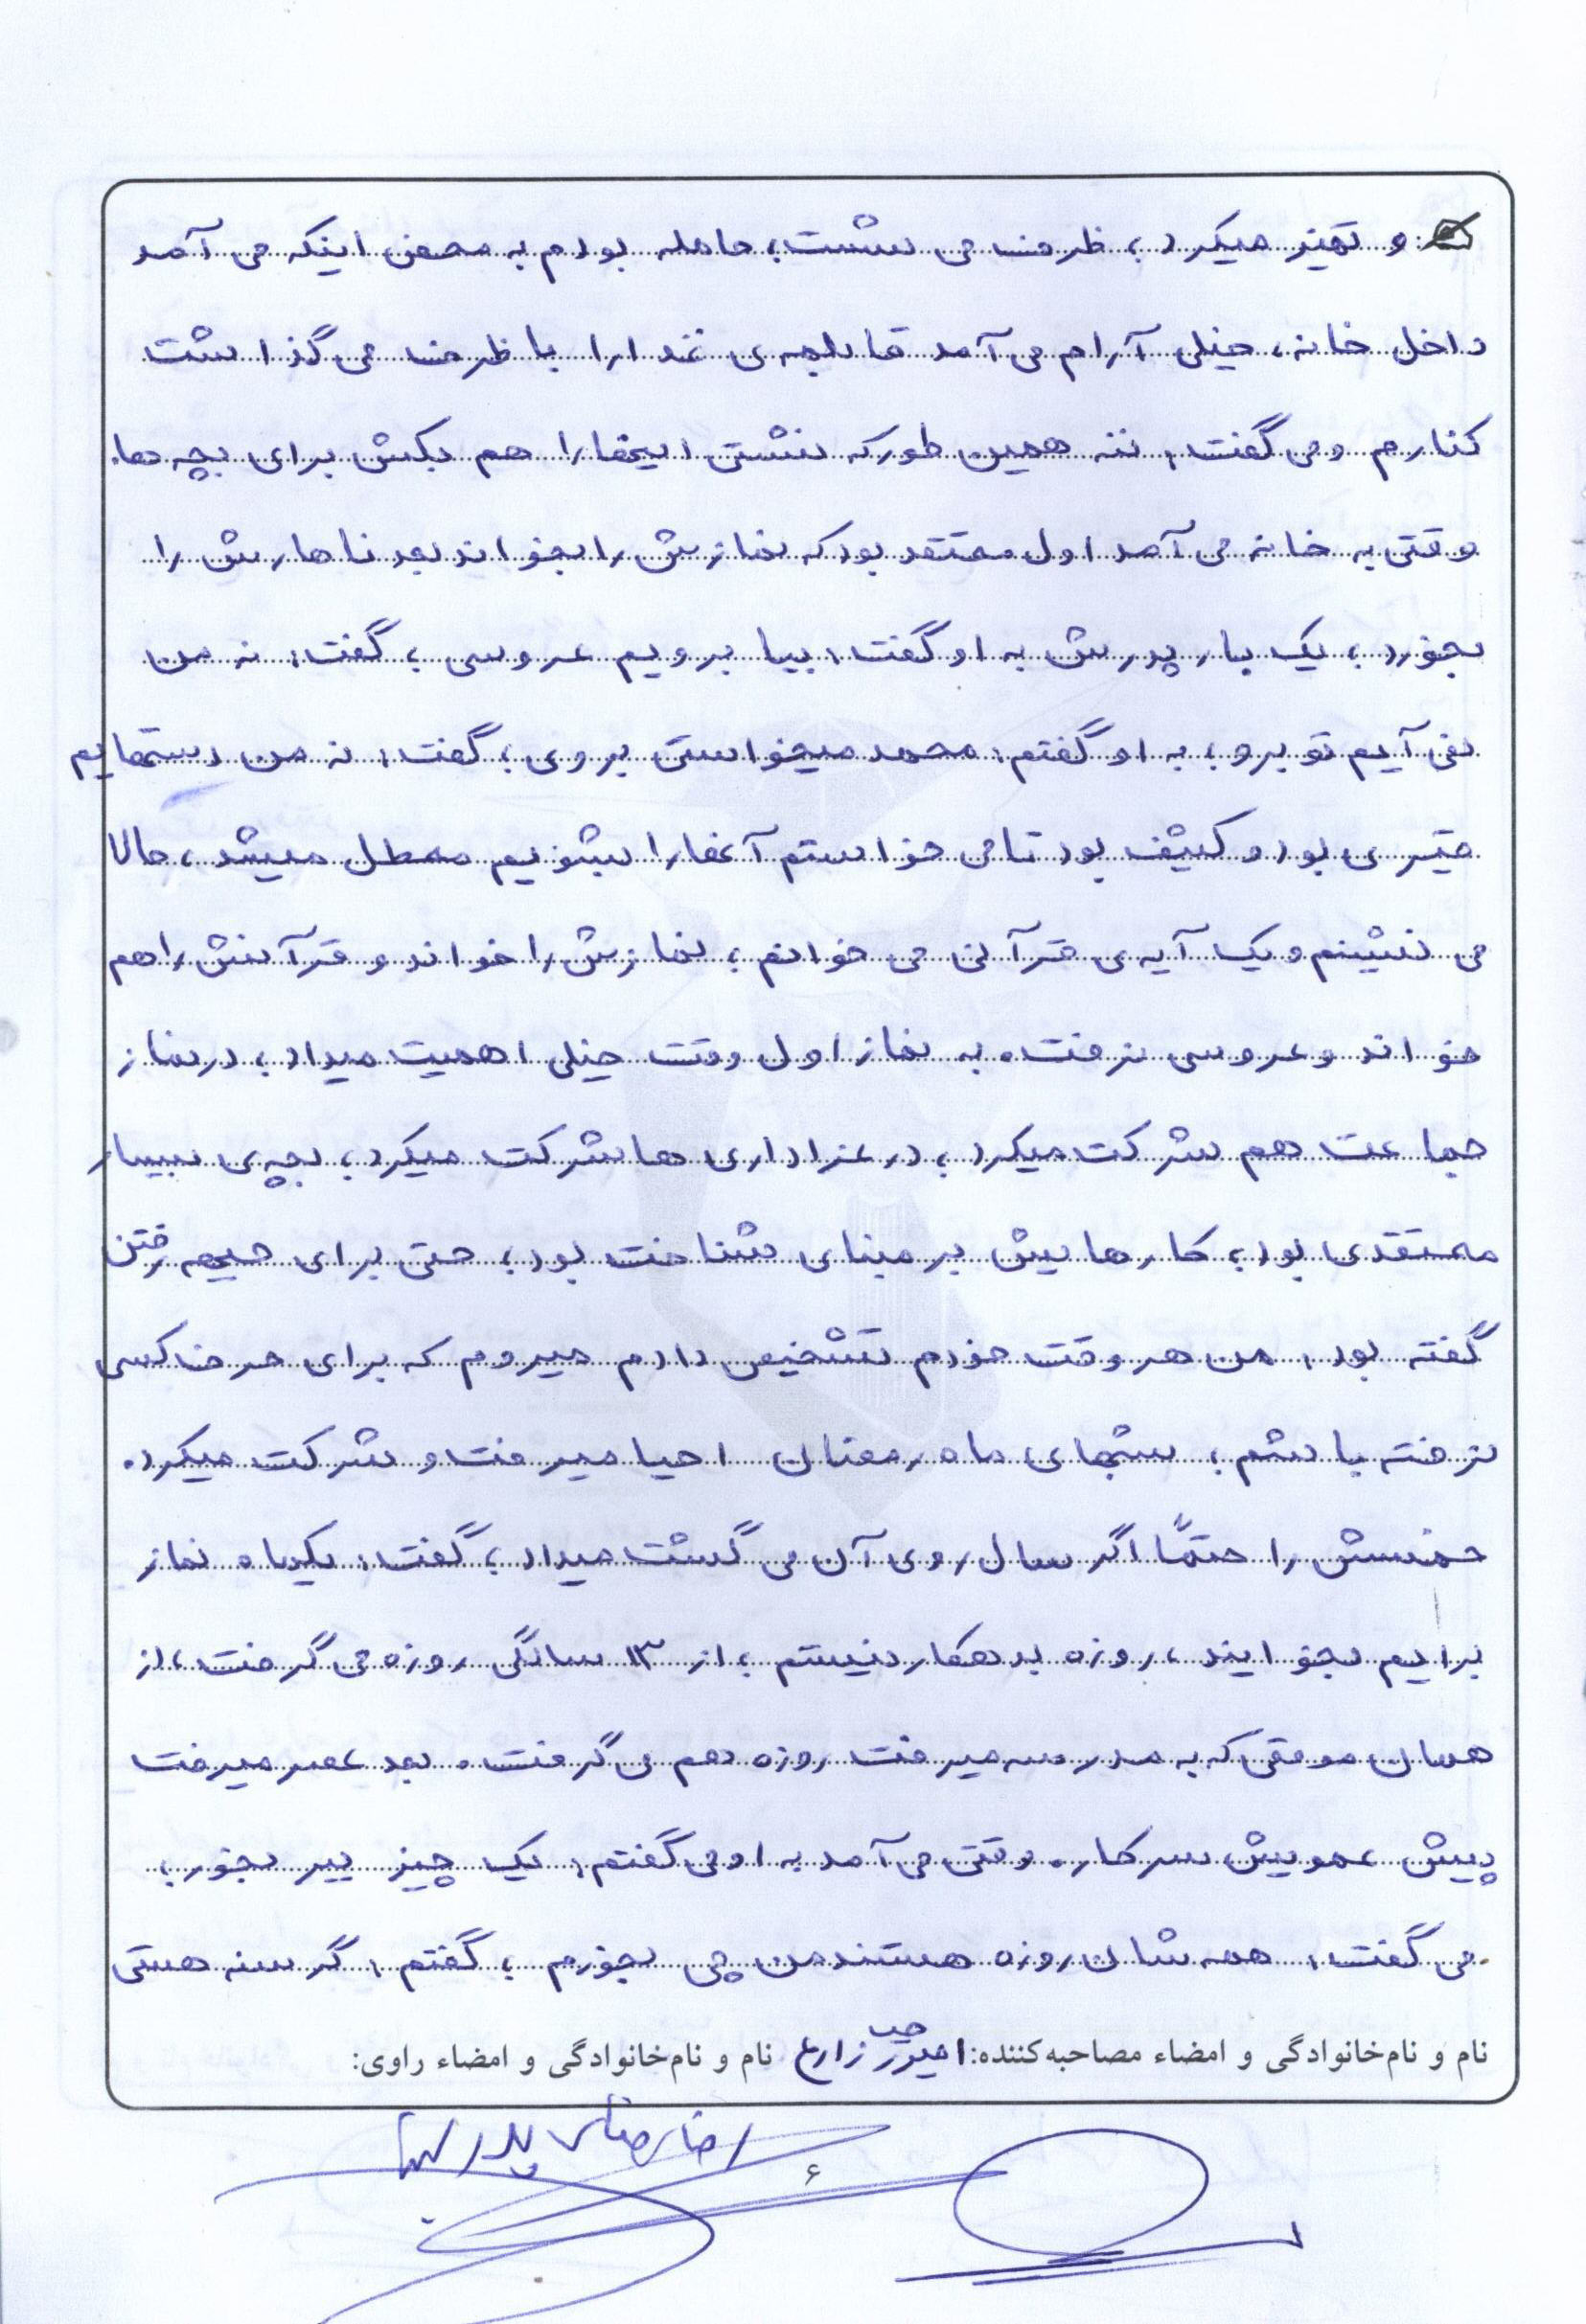 و تمیز میکرد، ظرف می شست، حامله بودم به محض اینکه می آمد
داخل خانه، خیلی آرام می آمد قابلمه ی غذا را با ظرف می گذاشت
کنارم و می گفت: ننه همین طور که نشستی اینها را هم بکش برای بچه ها.
وقتی به خانه می آمد اول معتقد بود که نمازش را بخواند بعد ناهارش را
بخورد، یک بار پدرش به او گفت: بیا برویم عروسی، گفت: نه من
نمی آیم تو برو، به او گفتم: محمد میخواستی بروی، گفت: نه من دستهایم
قیری بود و کثیف بود تا می خواستم آنها را بشویم معطل میشد، حالا
می نشینم و یک آیه ی قرآنی می خوانم، نمازش را خواند و قرآنش را هم
خواند و عروسی نرفت. به نماز اول وقت خیلی اهمیت میداد، در نماز
جماعت هم شرکت میکرد، در عزاداری ها شرکت میکرد، بچه ی بسیار
معتقدی بود، کارهایش بر مبنای شناخت بود، حتی برای جبهه رفتن
گفته بود: من هر وقت خودم تشخیص دادم میروم که برای حرف کسی
نرفته باشم، شبهای ماه رمضان احیا میرفت و شرکت میکرد.
خمسش را حتماً اگر سال روی آن می گشت میداد، گفت: یکماه نماز
برایم بخوانید، روزه بدهکار نیستم، از ۱۳ سالگی روزه می گرفت، از
همان موقعی که به مدرسه میرفت روزه هم می گرفت. بعد عصر میرفت
پیش عمویش سر کار. وقتی می آمد به او می گفتم: یک چیز ببر بخور،
می گفت: همه شان روزه هستند من چی بخورم، گفتم: گرسنه هستی
نام و نام‌خانوادگی و امضاء مصاحبه‌کننده: زارع نام و نام‌خانوادگی و امضاء راوی:
۶